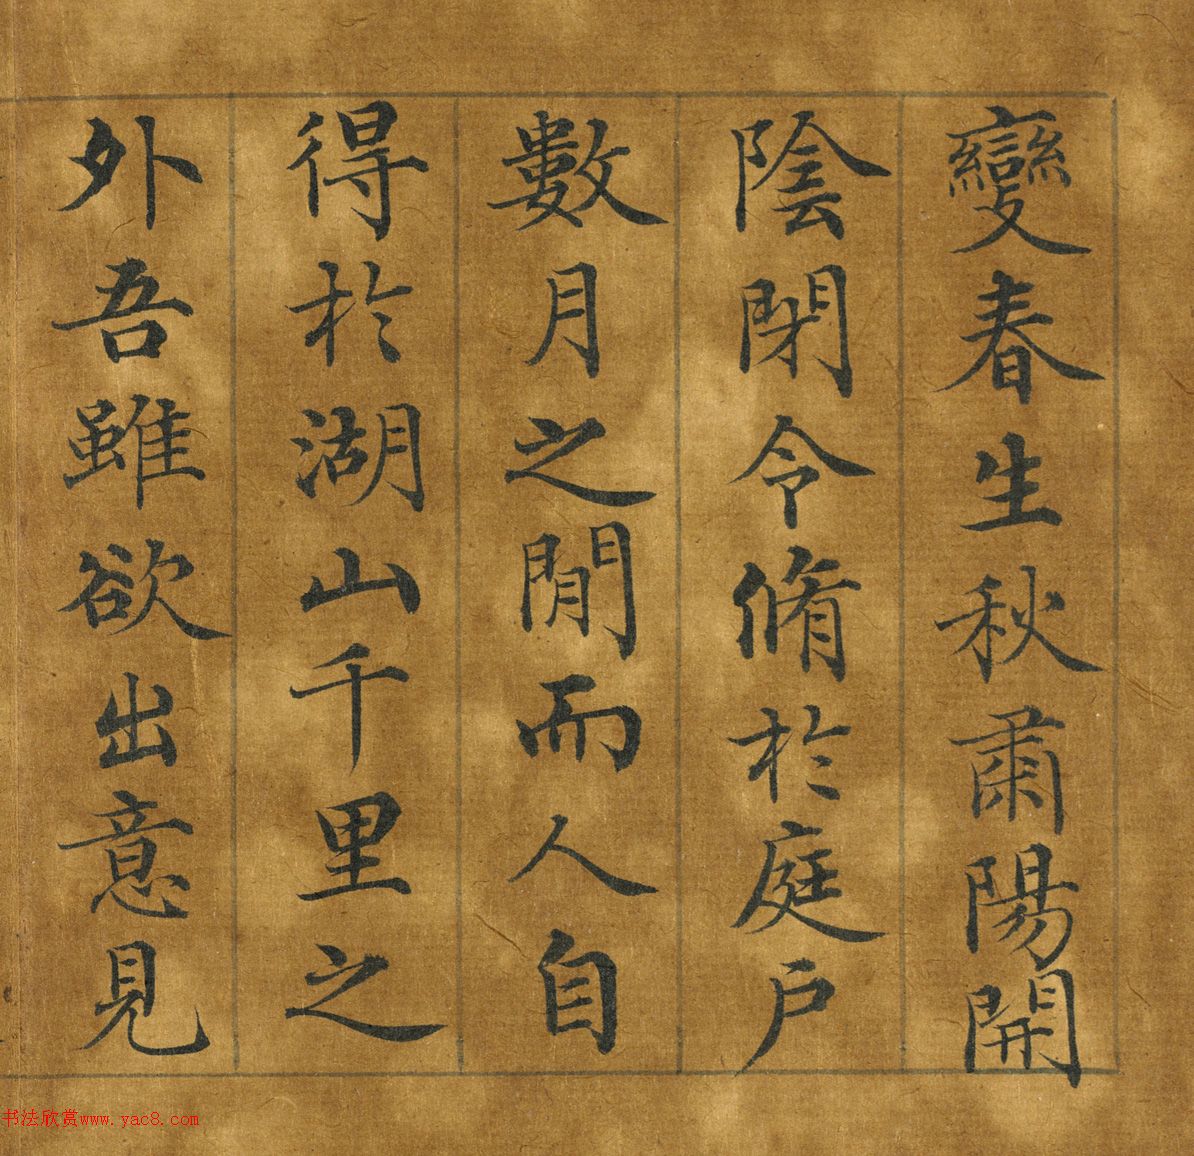 變春生秋肅陽開
陰閉令脩於庭戶
數月之閒而人自
得於湖山千里之
外吾雖欲出意見
书法欣赏www.yac8.com